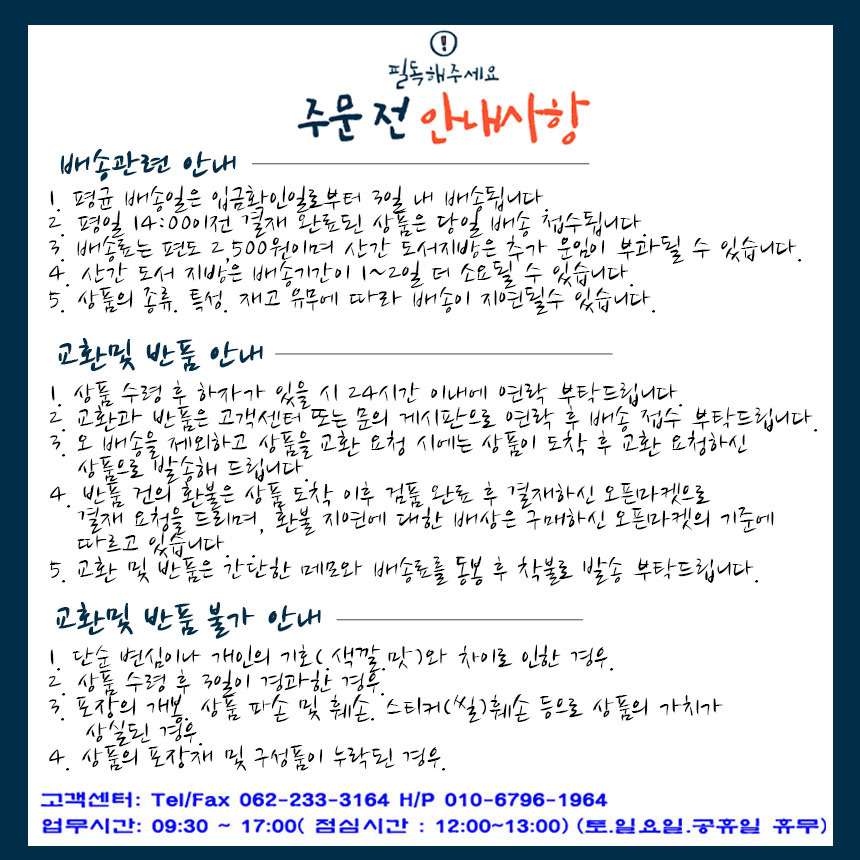 !
필독해주세요
주문 전 안내사항
배송관련 안내
1. 평균 배송일은 입금확인일로부터 3일 내 배송됩니다.
2. 평일 14:00이전 결재 완료된 상품은 당일 배송 접수됩니다.
3. 배송료는 편도 2,500원이며 산간 도서지방은 추가 운임이 부과될 수 있습니다.
4. 산간 도서 지방은 배송기간이 1~2일 더 소요될 수 있습니다.
5. 상품의 종류. 특성. 재고 유무에 따라 배송이 지연될수 있습니다.
교환및 반품 안내
1. 상품 수령 후 하자가 있을 시 24시간 이내에 연락 부탁드립니다.
2. 교환과 반품은 고객센터 또는 문의 게시판으로 연락 후 배송 접수 부탁드립니다.
3. 오 배송을 제외하고 상품을 교환 요청 시에는 상품이 도착 후 교환 요청하신
상품으로 발송해 드립니다.
4. 반품 건의 환불은 상품 도착 이후 검품 완료 후 결재하신 오픈마켓으로
결재 요청을 드리며, 환불 지연에 대한 배상은 구매하신 오픈마켓의 기준에
따르고 있습니다.
5. 교환 및 반품은 간단한 메모와 배송료를 동봉 후 착불로 발송 부탁드립니다.
교환및 반품 불가 안내
1. 단순 변심이나 개인의 기호(.색깔.맛)와 차이로 인한 경우.
2. 상품 수령 후 3일이 경과한 경우.
3. 포장의 개봉. 상품 파손 및 훼손. 스티커(씰)훼손 등으로 상품의 가치가
상실된 경우.
4. 상품의 포장재 및 구성품이 누락된 경우.
고객센터: Tel/Fax 062-233-3164 H/P 010-6796-1964
업무시간: 09:30 ~ 17:00( 점심시간 : 12:00~13:00) (토.일요일.공휴일 휴무)